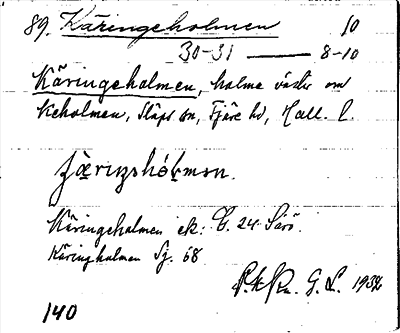 89. Käringeholmen 10
30-31 — 8-10
Käringeholmen, holme väster om
Keholmen, Släps sn, Fjäre hd, Hall. l.
Käringeholmen ek: C. 24 Särö.
Käringholmen Sj. 68
G. L. 1932
140